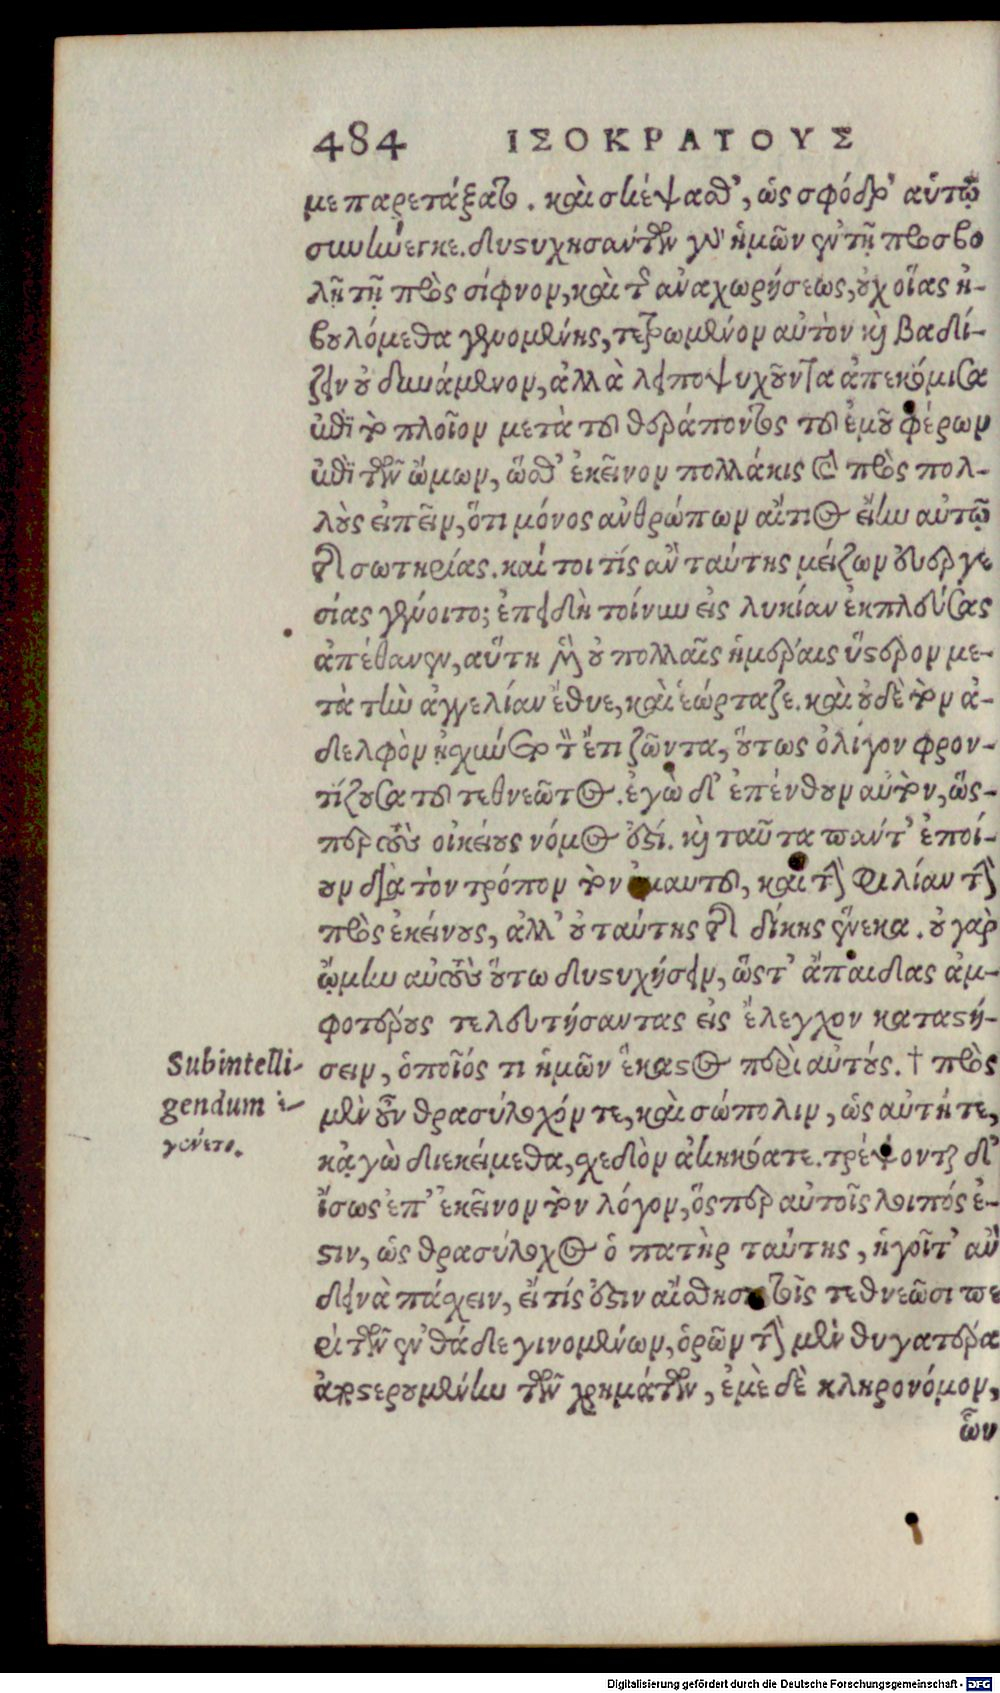 484 ΙΣΟΚΡΑΤΟΥΣ
με παρετάξατο. καὶ σκέψασθ', ὡς σφόδρ' αὑτῷ
συνήνεγκε. δυστυχησάντων γὸ ἡμῶν ἐν τῇ προσβο
λῇ τῇ πρὸς σίφνον, καὶ τῆς ἀναχωρήσεως, οὐχ οἵας ἠ-
βουλόμεθα γενομένης, τετρωμένον αὐτὸν καὶ βαδί-
ζειν οὐ δυνάμενον, ἀλλὰ λειποψυχοῦντα ἀπεκόμισα
ἐπὶ τὸ πλοῖον μετὰ τοῦ θεράποντος τοῦ ἐμοῦ φέρων
ἐπὶ τῶν ὤμων, ὥσθ' ἐκεῖνον πολλάκις καὶ πρὸς πολ-
λοὺς εἰπεῖν, ὅτι μόνος ἀνθρώπων αἴτιος εἴην αὐτῷ
τῆς σωτηρίας. καί τοι τίς ἂν ταύτης μείζων εὐεργε
σίας γένοιτο; ἐπειδὴ τοίνυν εἰς λυκίαν ἐκπλεύσας
ἀπέθανεν, αὕτη μὲν οὐ πολλαῖς ἡμέραις ὕστερον με-
τὰ τὴν ἀγγελίαν ἔθυε, καὶ ἑώρταζε. καὶ οὐδὲ τὸν ἀ-
δελφὸν ᾐσχύνετο τὸν ἔτι ζῶντα, οὕτως ὀλίγον φρον-
τίζουσα τοῦ τεθνεῶτος. ἐγὼ δ' ἐπένθουν αὐτὸν, ὥς-
περ τοὺς οἰκείους νόμος ἐστί. καὶ ταῦτα πάντ' ἐποί-
ουν διὰ τὸν τρόπον τὸν ἐμαυτοῦ, καὶ τὴν φιλίαν τὴν
πρὸς ἐκείνους, ἀλλ' οὐ ταύτης τῆς δίκης ἕνεκα. οὐ γὰρ
ᾤμην αὐτοὺς οὕτω δυστυχήσειν, ὥστ' ἄπαιδας ἀμ-
φοτέρους τελευτήσαντας εἰς ἔλεγχον καταστή-
σειν, ὁποῖός τι ἡμῶν ἕκαστος περὶ αὐτούς. † πρὸς
μὲν οὖν θρασύλοχόν τε, καὶ σώπολιν, ὡς αὐτή τε,
κᾀγὼ διεκείμεθα, σχεδὸν ἀκηκόατε. τρέψονται δ'
ἴσως ἐπ' ἐκεῖνον τὸν λόγον, ὅσπερ αὐτοῖς λοιπός ἐ-
στιν, ὡς θρασύλοχος ὁ πατὴρ ταύτης, ἡγοῖτ' ἂν
δεινὰ πάσχειν, εἴ τίς ἐστιν αἴσθησις τοῖς τεθνεῶσι πε
ρὶ τῶν ἐνθάδε γινομένων, ὁρῶν τὴν μὲν θυγατέρα
ἀποστερουμένην τῶν χρημάτων, ἐμὲ δὲ κληρονόμον,
ὧν
Subintelli-
gendum ἐ-
γένετο.
Digitalisierung gefördert durch die Deutsche Forschungsgemeinschaft - DFG